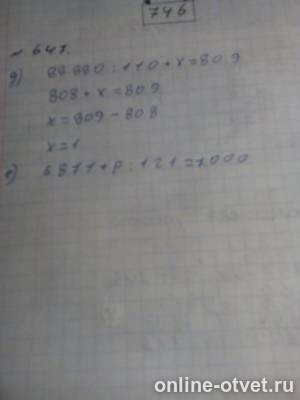 746
~ 641.
g) 88.880 : 110 + x = 809
808 + x = 809
x = 809 - 808
x = 1
e) 6871 + p : 121 = 7.000
online-otvet.ru